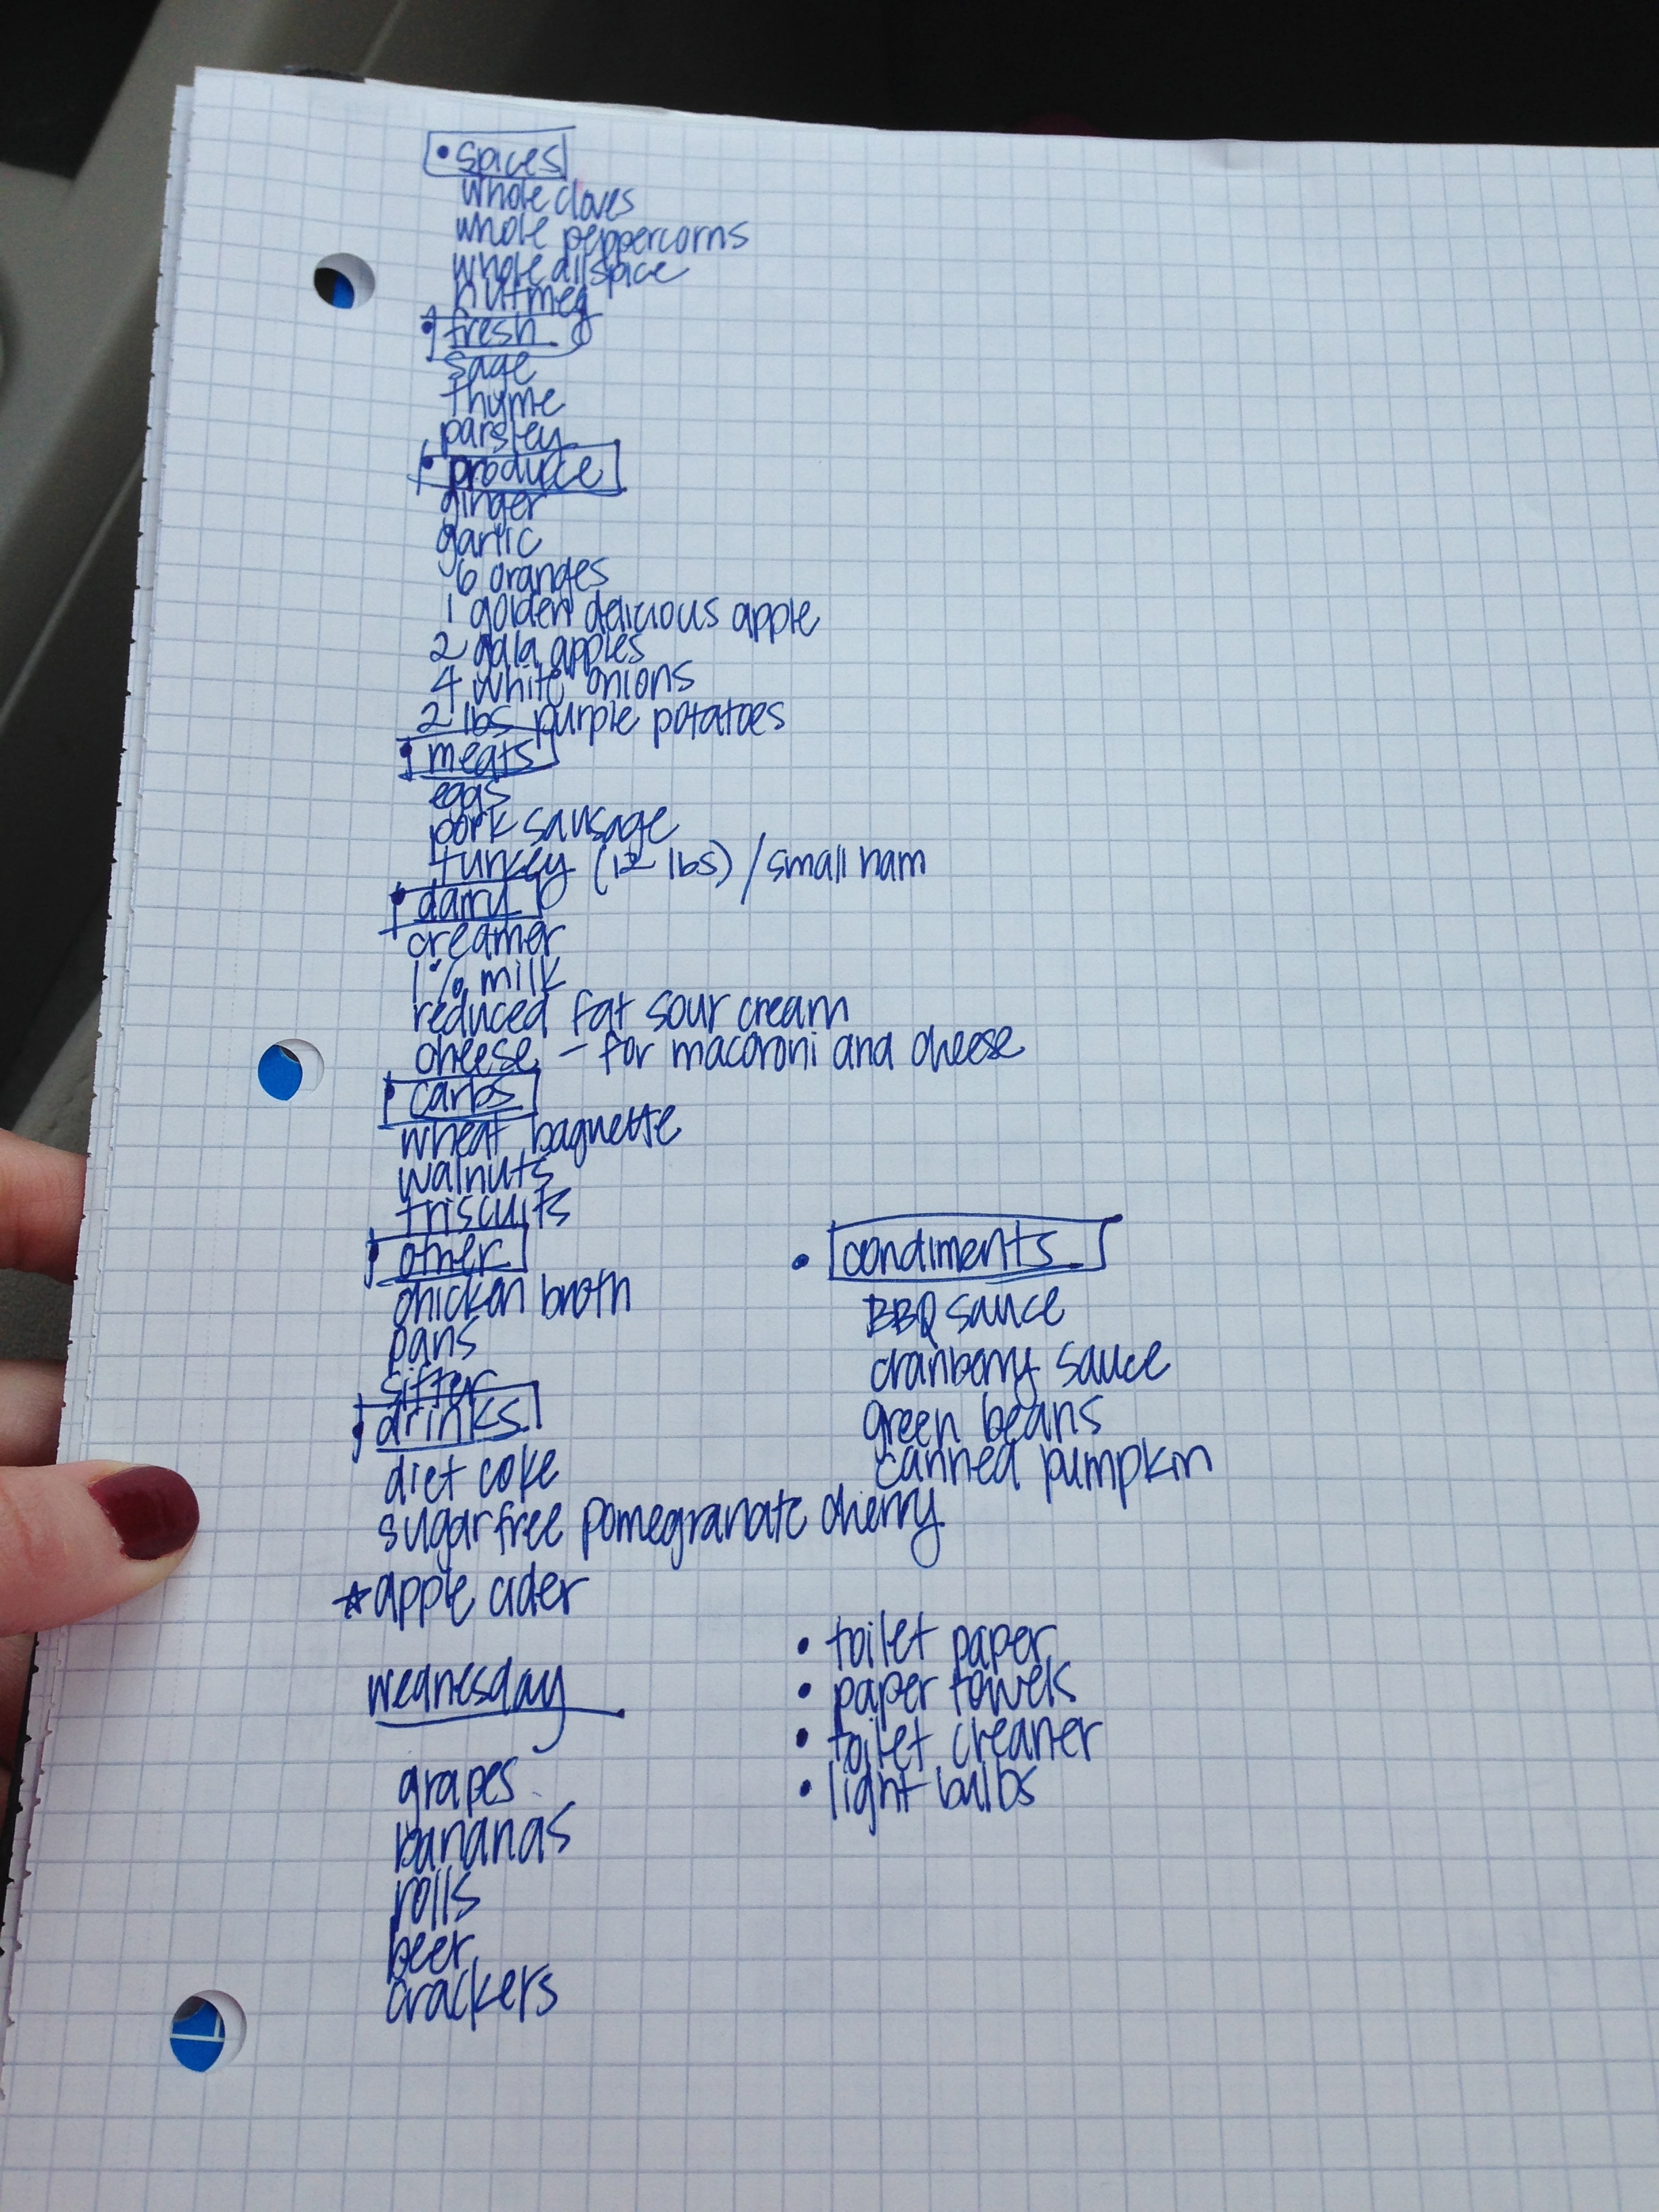 • spices
whole cloves
whole peppercorns
whole allspice
nutmeg
• fresh
sage
thyme
parsley
• produce
ginger
garlic
6 oranges
1 golden delicious apple
2 gala apples
4 white onions
2 lbs purple potatoes
• meats
eggs
pork sausage
turkey (12 lbs) / small ham
• dairy
creamer
1% milk
reduced fat sour cream
cheese - for macaroni and cheese
• carbs
wheat baguette
walnuts
triscuits
• other
chicken broth
pans
sifter
• drinks
diet coke
sugar free pomegranate cherry
☆ apple cider
• condiments
BBQ sauce
cranberry sauce
green beans
canned pumpkin
wednesday
grapes
bananas
rolls
beer
crackers
• toilet paper
• paper towels
• toilet cleaner
• light bulbs